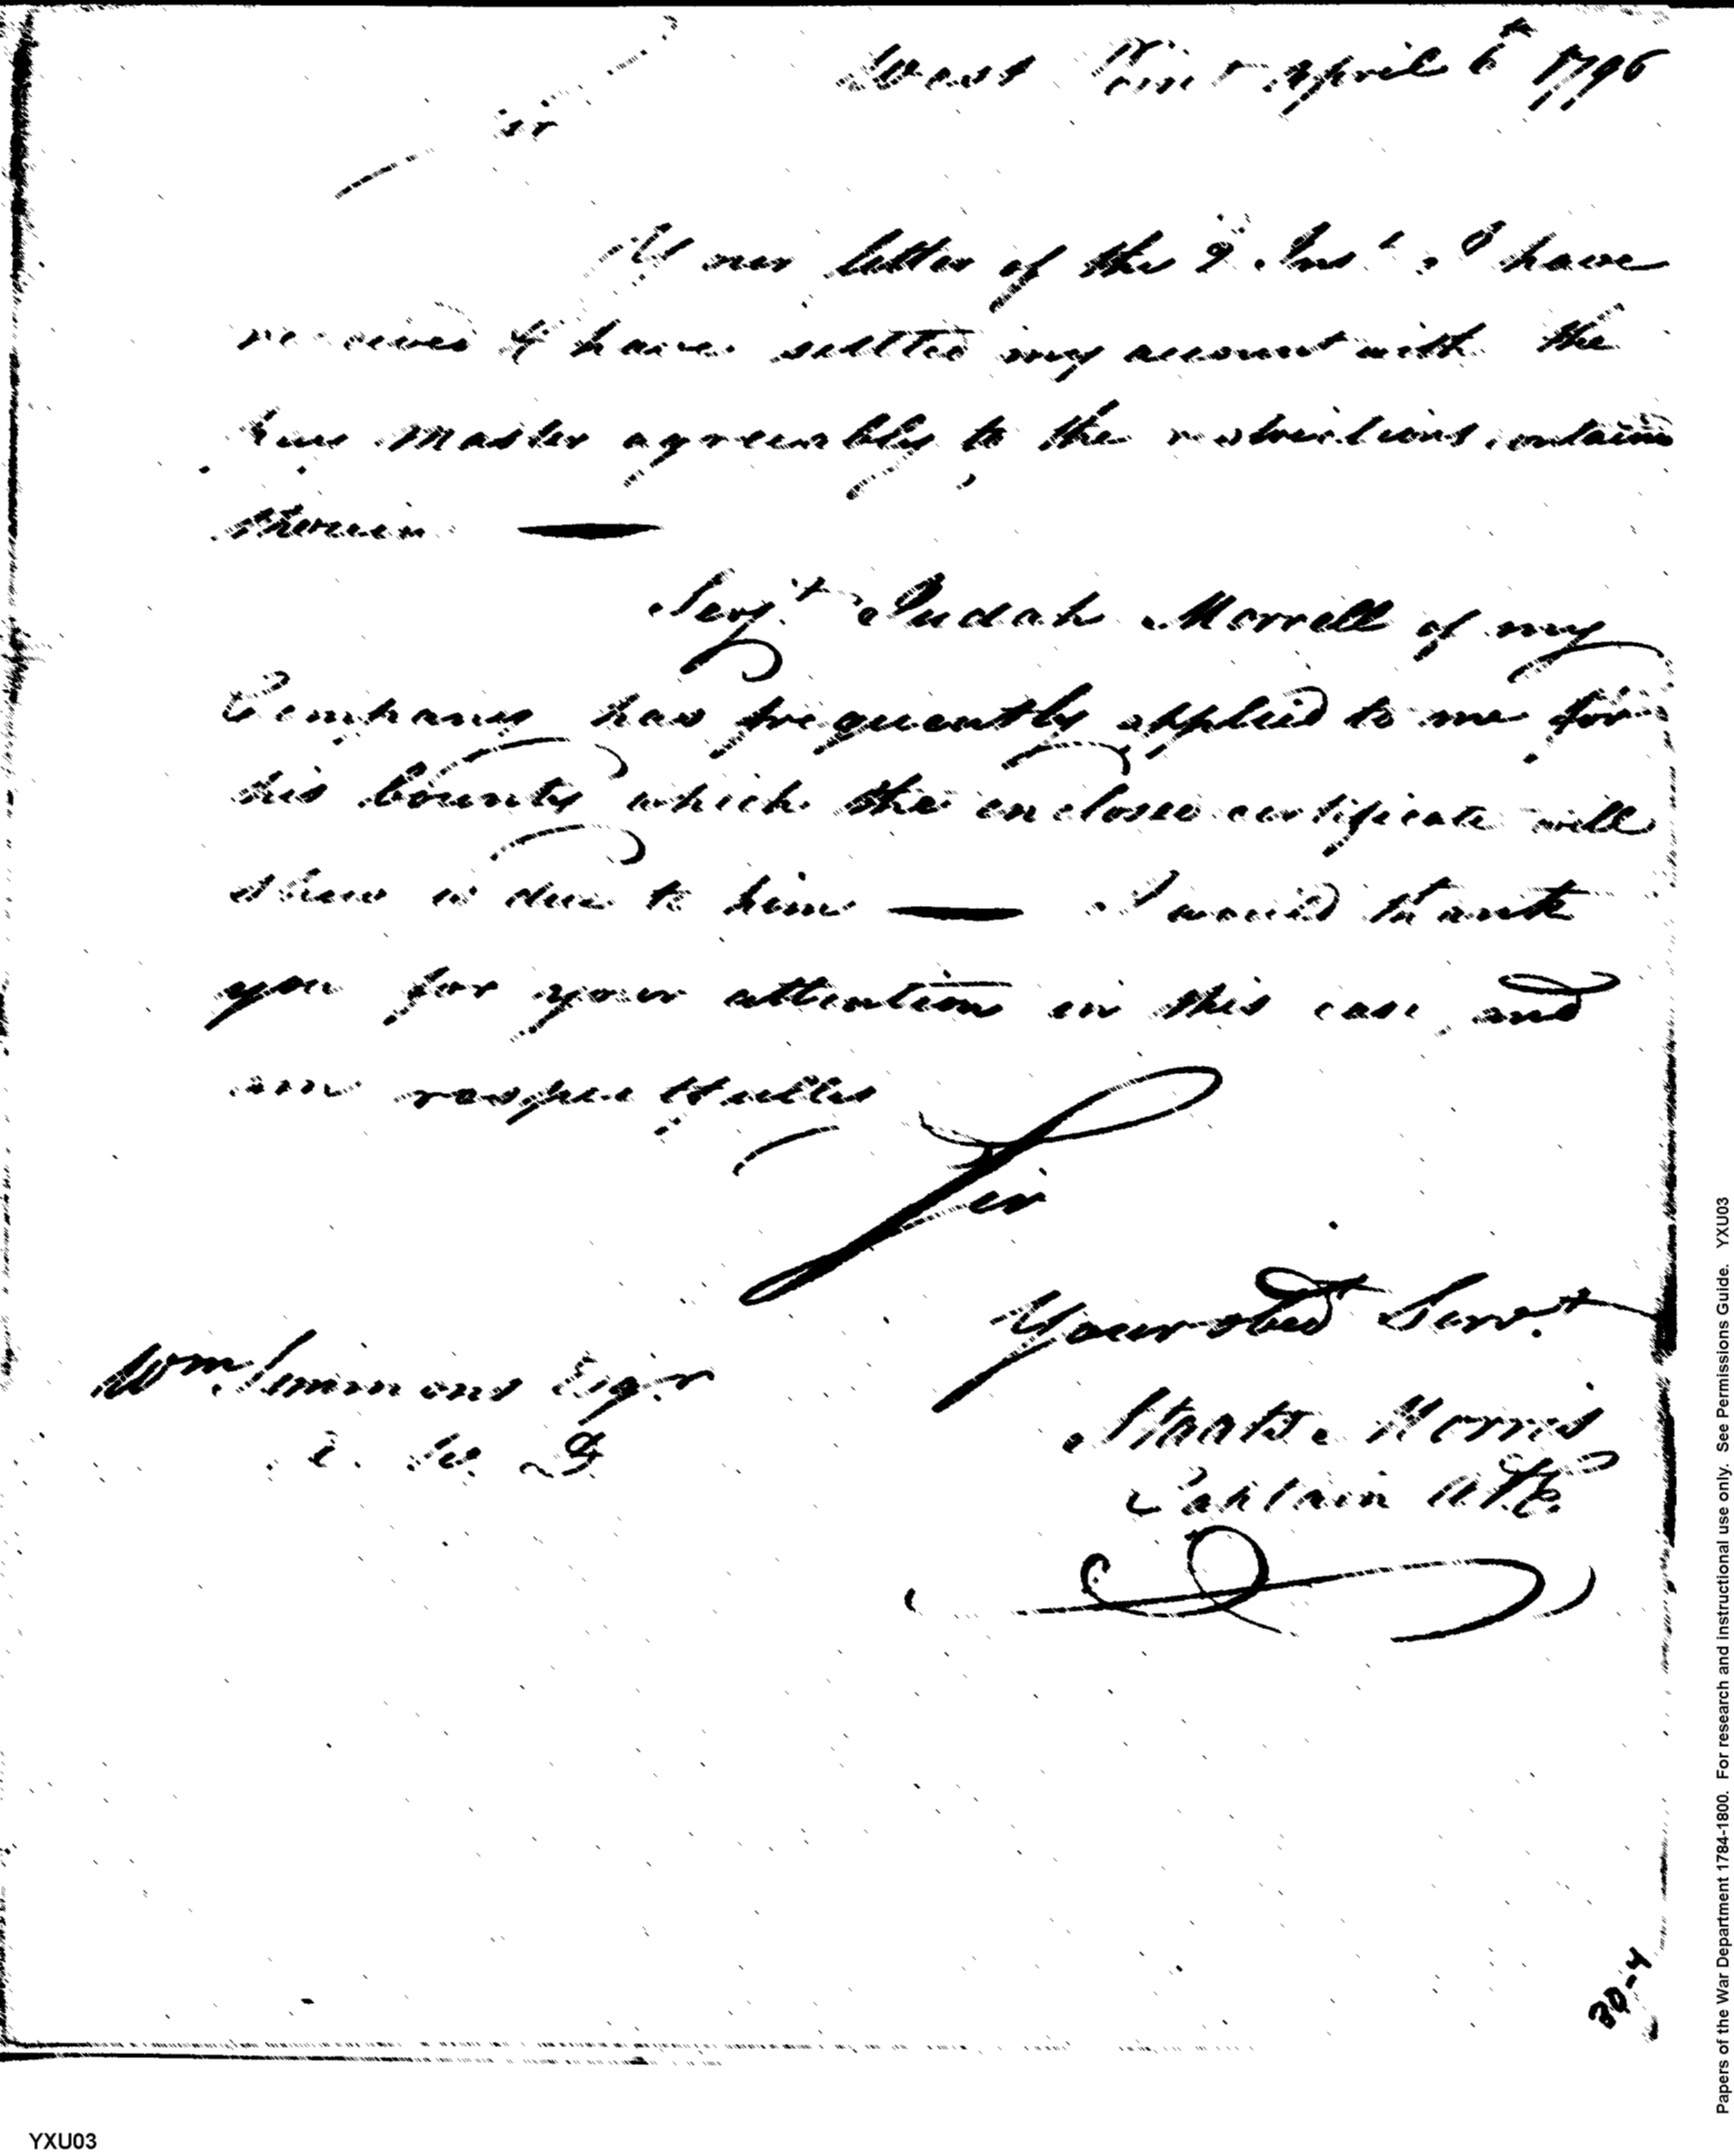 West Point April 6th 1796
Sir
Your letter of the 2d Inst. I have
received & have settled my account with the
Pay Master agreeably to the contain'd
therein —
Serjt. Judah Morrell of my
Company has frequently applied to me for
his bounty which the enclosed certificate will
shew is due to him — I would thank
you for your attention in this case, and
am respectfully
Sir
Your obed Servt
Staats Morris
Captain
Wm Simmons Esqr
A. W. D
20-4
YXU03
Papers of the War Department 1784-1800. For research and instructional use only. See Permissions Guide. YXU03